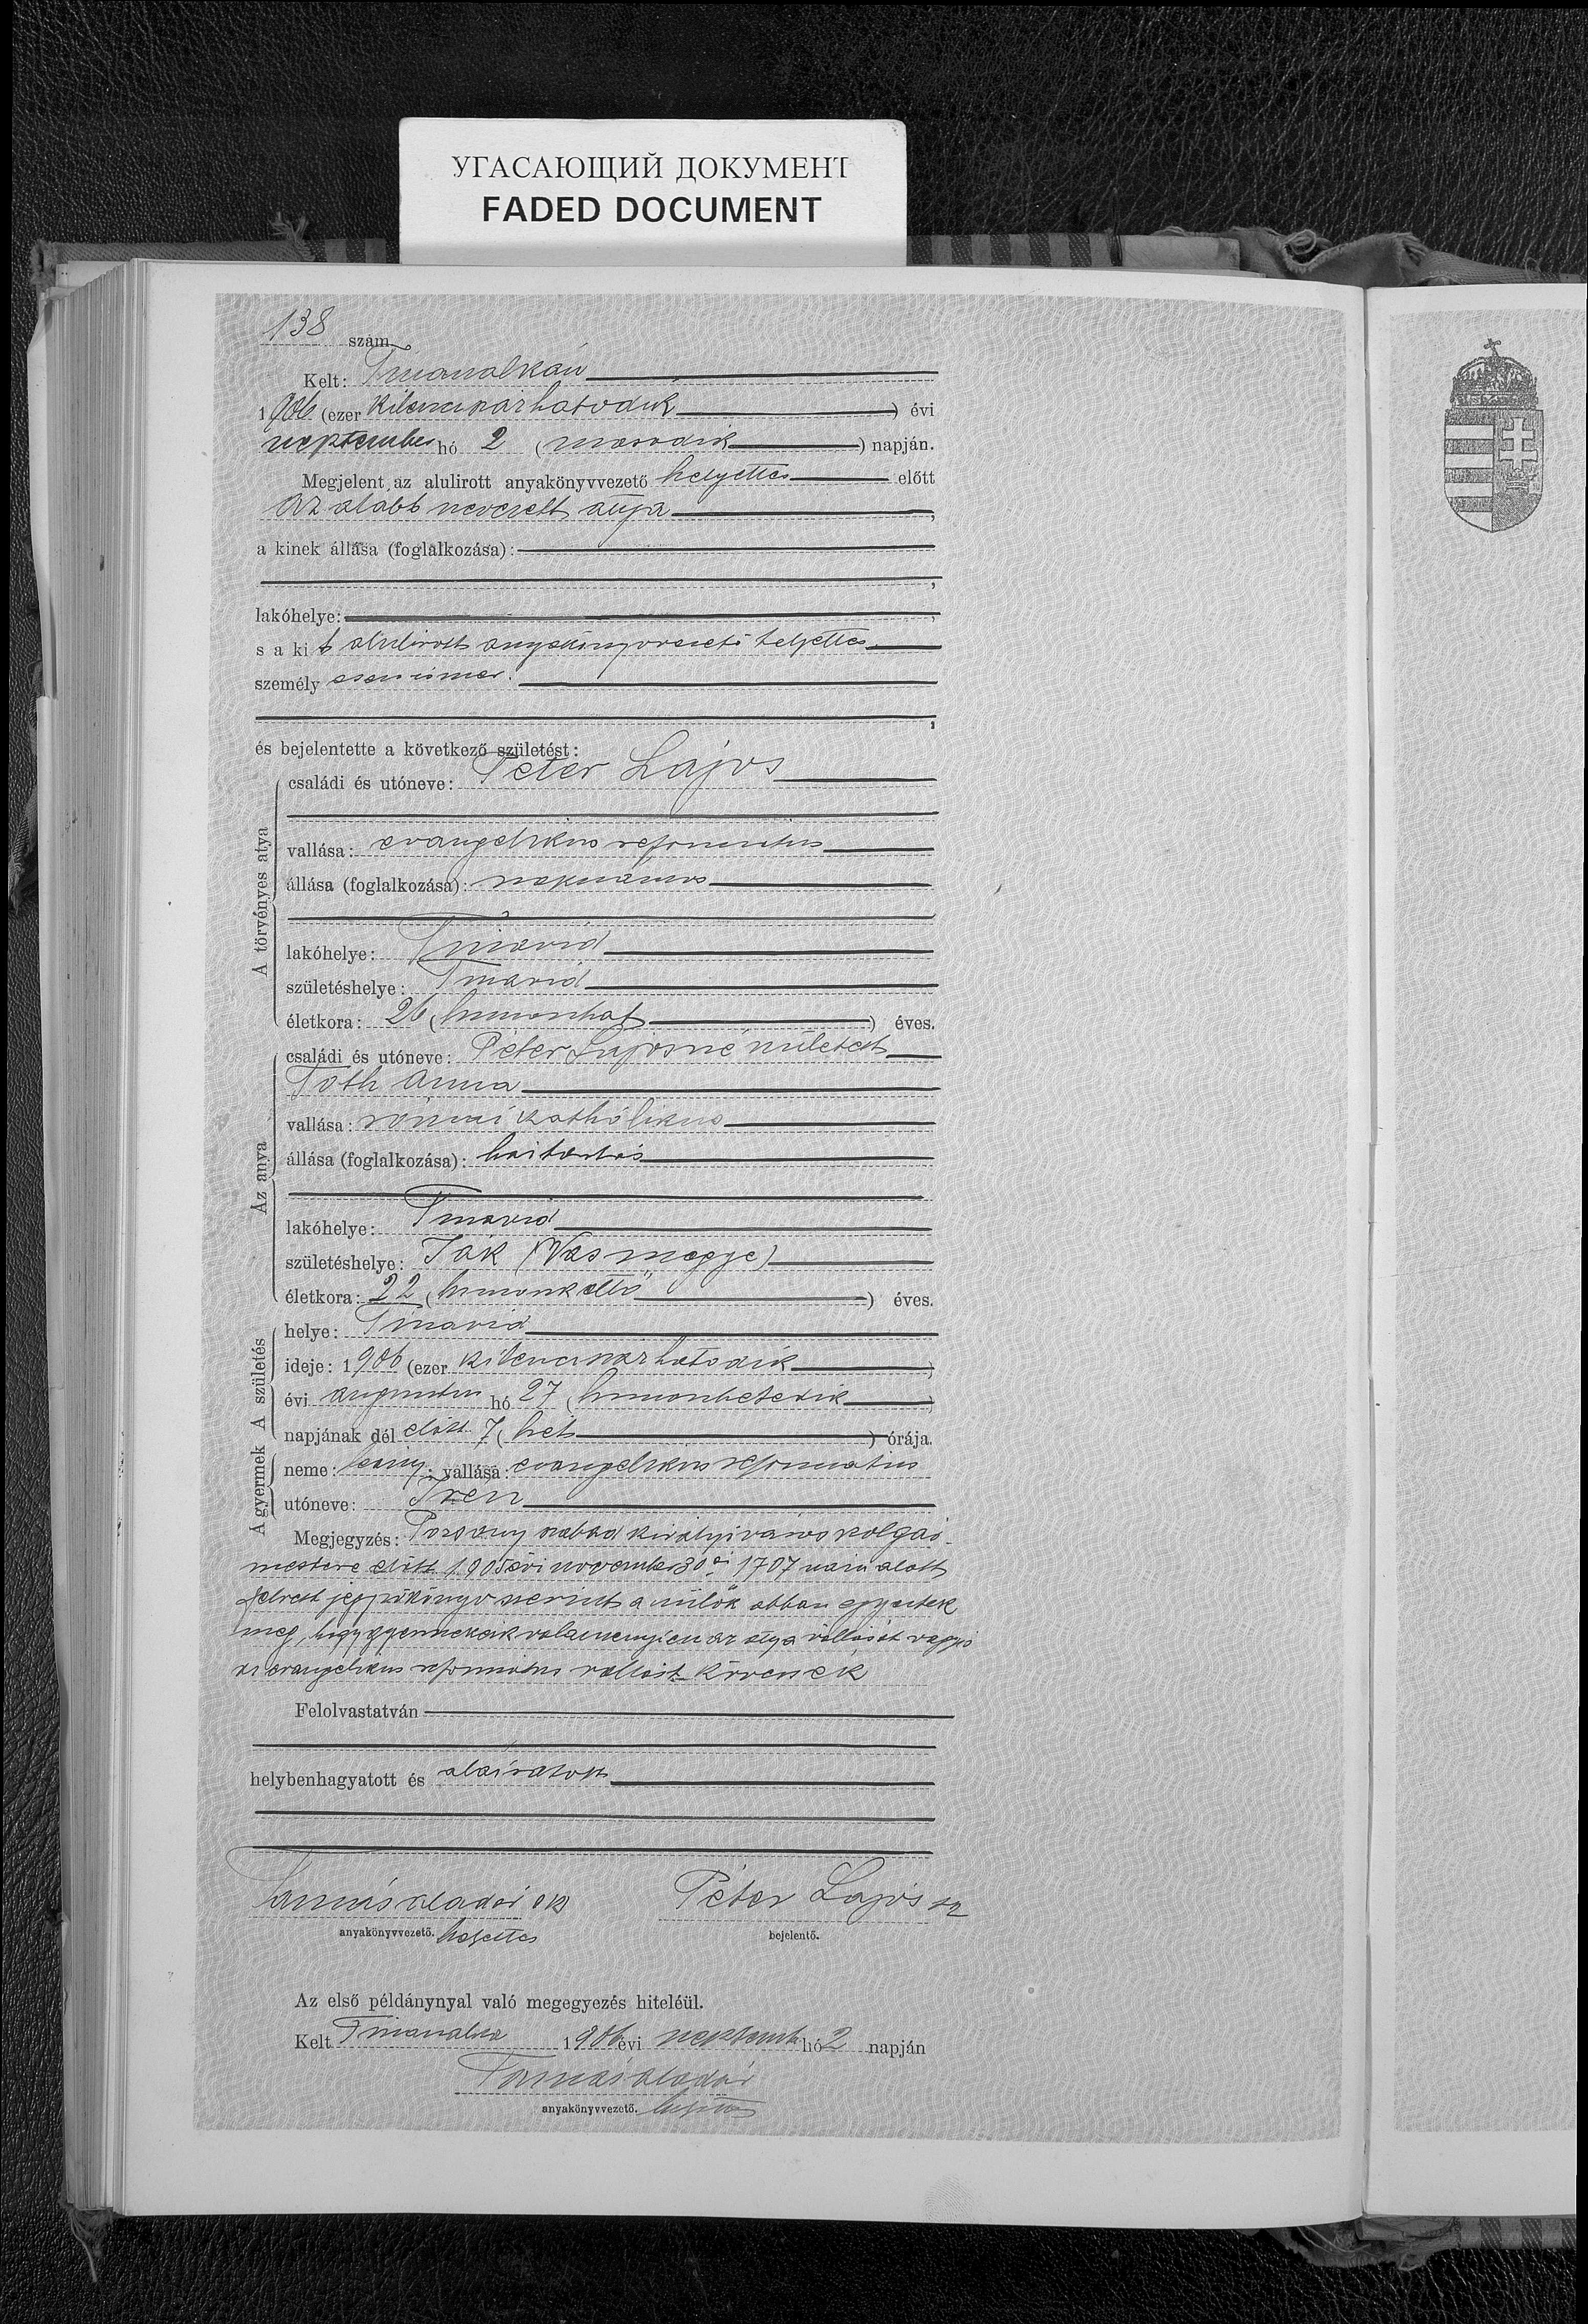 УГАСАЮЩИЙ ДОКУМЕНТ
FADED DOCUMENT
138 szám
Kelt:
1906 (ezer kilenczszázhatodik) évi
szeptember hó 2 (második) napján.
Megjelent az alulirott anyakönyvvezető helyettes előtt
az alább nevezett atya,
a kinek állása (foglalkozása):
lakóhelye:
s a kit alulirott anyakönyvvezető helyettes
személyesen ismer.
és bejelentette a következő születést:
A törvényes atya
családi és utóneve: Péter Lajos
vallása: evangelikus reformatus
állása (foglalkozása): napszámos
lakóhelye:
születéshelye:
életkora: 26 (huszonhat) éves.
Az anya
családi és utóneve: Péter Lajosné született
Tóth Anna
vallása: római katholikus
állása (foglalkozása): háztartás
lakóhelye:
születéshelye: Ják (Vas megye)
életkora: 22 (huszonkettő) éves.
A születés
helye:
ideje: 1906 (ezer kilenczszázhatodik)
évi augusztus hó 27 (huszonhetedik)
napjának dél előtt 7 (hét) órája.
A gyermek
neme: leány; vallása: evangelikus reformatus
utóneve: Irén
Megjegyzés: Pozsony szabad királyi város polgár-
mestere előtt 1905 évi november 30 án 1707 szám alatt
felvett jegyzőkönyv szerint a szülők abban egyeztek
meg, hogy gyermekeik valamennyien az atya vallását vagyis
az evangelikus reformatus vallást követik
Felolvastatván
helybenhagyatott és aláiratott
Tamás Aladár sk Péter Lajos sk
anyakönyvvezető. helyettes bejelentő.
Az első példánynyal való megegyezés hiteléül.
Kelt 1906 évi szeptember hó 2 napján
Tamás Aladár
anyakönyvvezető. helyettes